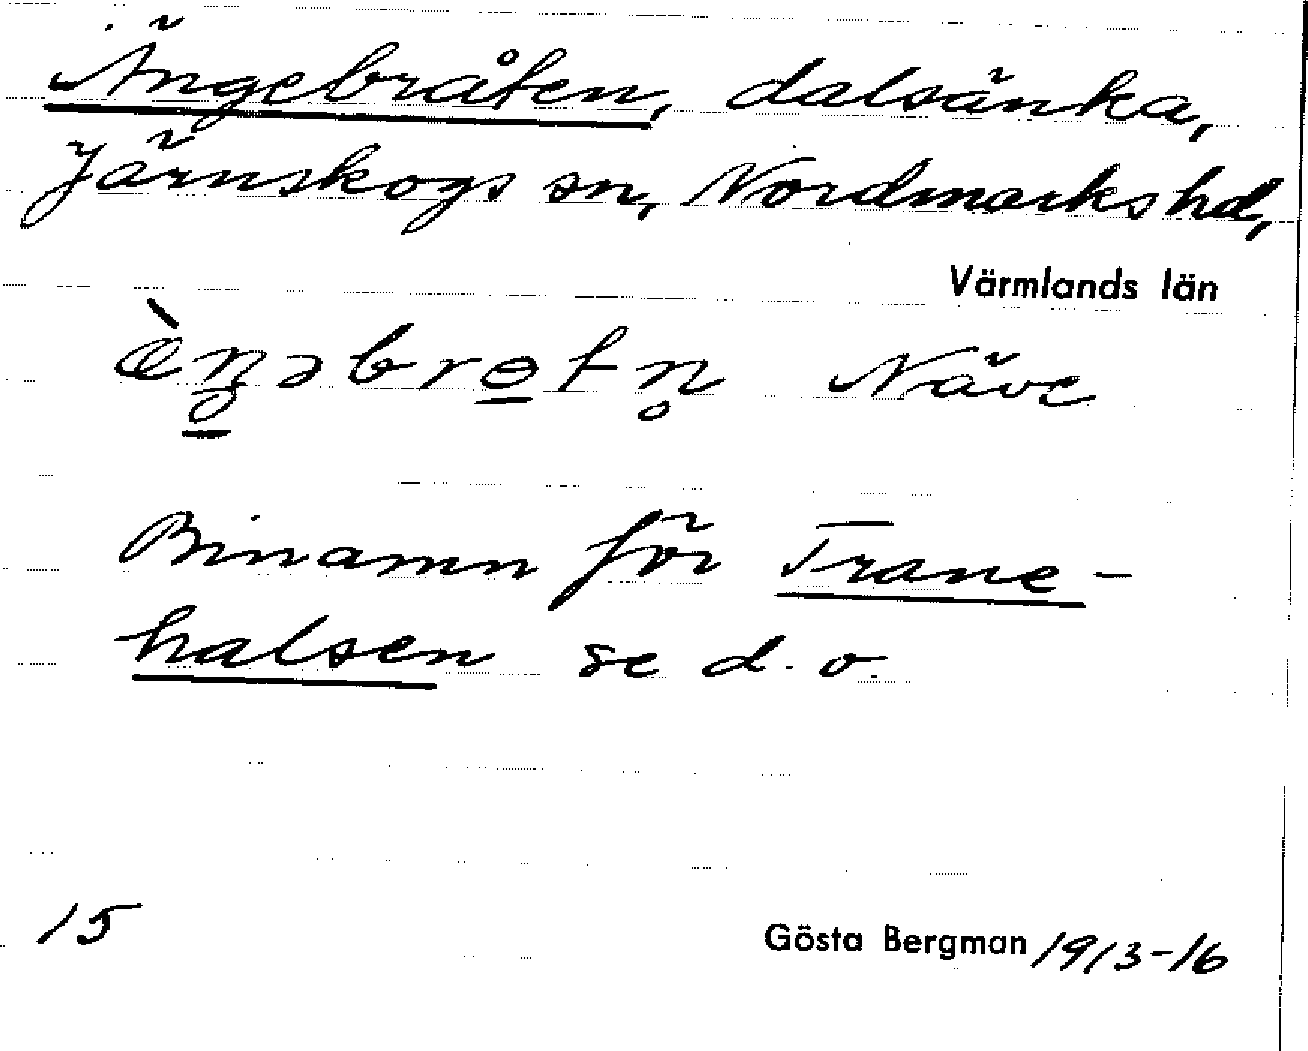 Ängebråten, dalsänka,
Järnskogs sn, Nordmarks hd,
Värmlands län
Näve
Binamn för Trane-
halsen se d. o.
15
Gösta Bergman 1913-16